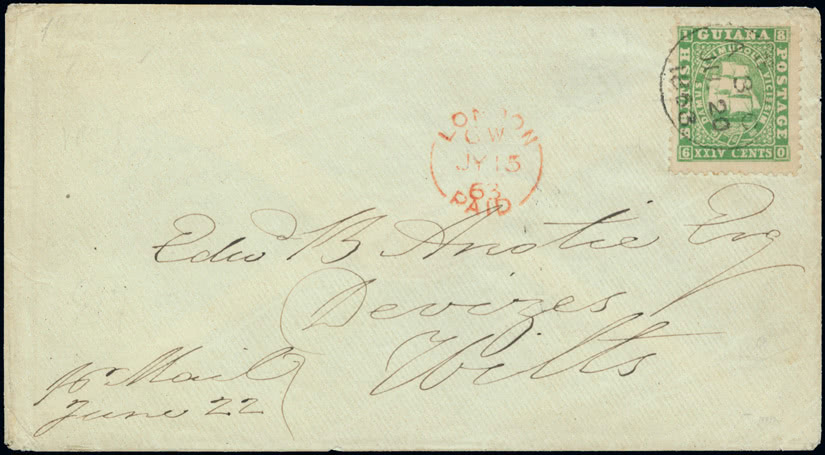 1 GUIANA 8
BRITISH
POSTAGE
DAMUS PETIMUSQUE VICISSIM
6 XXIV CENTS 0
20
1863
LONDON
CW
JY 15
63
PAID
Edwd B Anstie Esq
Devizes
Wilts
pr Mail
June 22